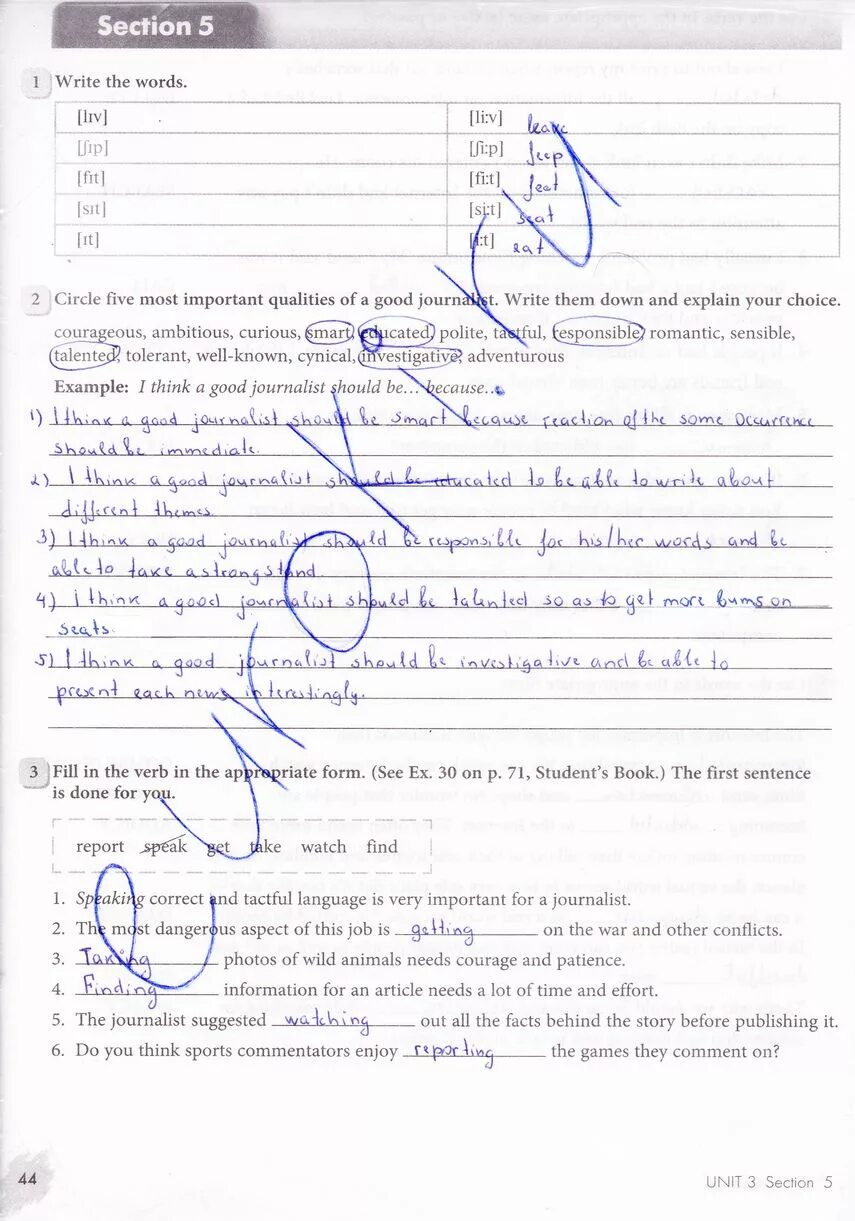 Section 5
1 Write the words.
[lıv] [li:v] leave
[ʃıp] [ʃi:p] jeep
[fıt] [fi:t] feat
[sıt] [si:t] seat
[ıt] [i:t] eat
2 Circle five most important qualities of a good journalist. Write them down and explain your choice.
courageous, ambitious, curious, smart, educated, polite, tactful, responsible, romantic, sensible,
talented, tolerant, well-known, cynical, investigative, adventurous
Example: I think a good journalist should be... because...
1) I think a good journalist should be smart because reaction of the some occurrence
should be immediate.
2) I think a good journalist should be educated to be able to write about
different themes.
3) I think a good journalist should be responsible for his/her words and be
able to take a strong stand.
4) i think a good journalist should be talented so as to get more bums on
seats.
5) I think a good journalist should be investigative and be able to
present each news interestingly.
3 Fill in the verb in the appropriate form. (See Ex. 30 on p. 71, Student's Book.) The first sentence
is done for you.
report speak get take watch find
1. Speaking correct and tactful language is very important for a journalist.
2. The most dangerous aspect of this job is getting on the war and other conflicts.
3. Taking photos of wild animals needs courage and patience.
4. Finding information for an article needs a lot of time and effort.
5. The journalist suggested watching out all the facts behind the story before publishing it.
6. Do you think sports commentators enjoy reporting the games they comment on?
44
UNIT 3 Section 5